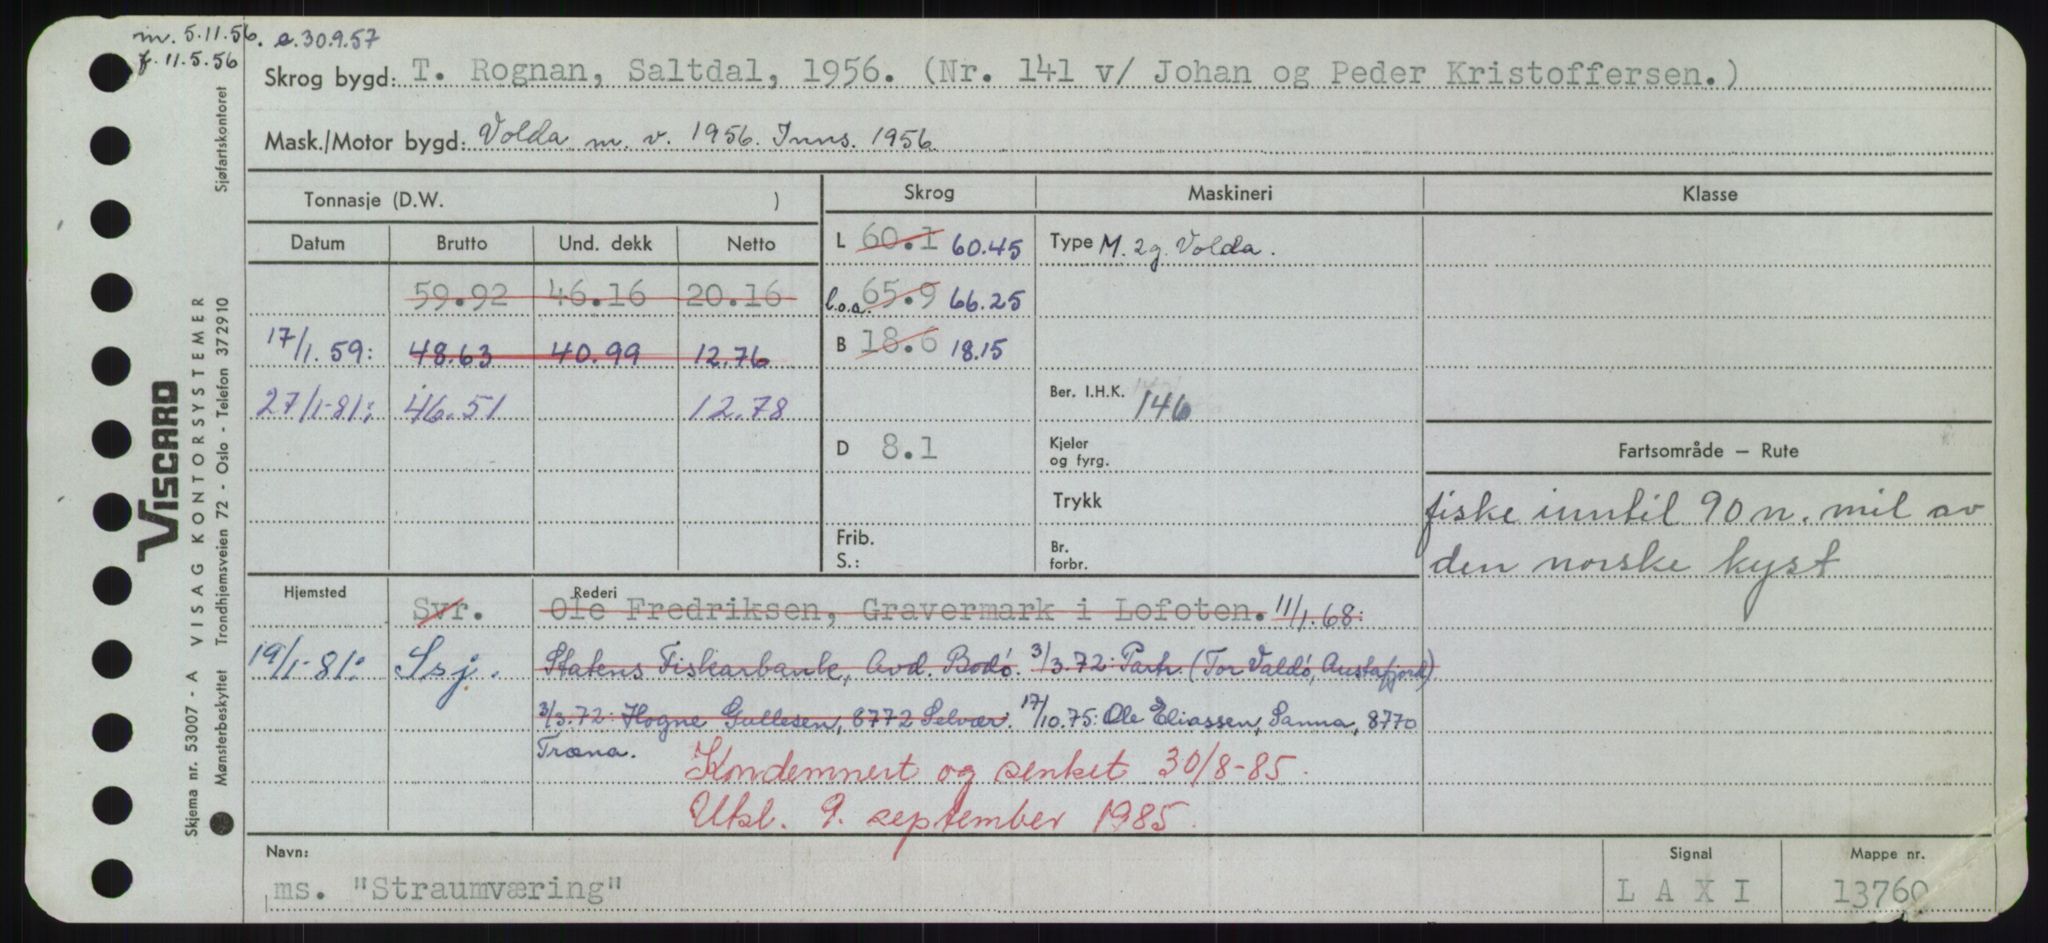 m. 5.11.56. e. 30.9.57
f. 11.5.56
Skrog bygd: T. Rognan, Saltdal, 1956. (Nr. 141 v/ Johan og Peder Kristoffersen.)
Mask./Motor bygd: Volda m. v. 1956. Inns. 1956.
Tonnasje (D.W. )
Skrog Maskineri Klasse
Datum Brutto Und. dekk Netto
L 60.1 60.45 Type M. 2g. Volda.
59.92 46.16 20.16
l.o.a. 65.9 66.25
17/1.59: 48.63 40.99 12.76
B 18.6 18.15
27/1-81: 46.51 12.78
Ber. I.H.K. 146
D 8.1
Kjeler
og fyrg.
Trykk
Frib.
S.:
Br.
forbr.
Fartsområde — Rute
fiske inntil 90 n. mil av
den norske kyst
Hjemsted Rederi
Svr. Ole Fredriksen, Gravermark i Lofoten. 11/1.68:
19/1-81: Ssj. Statens Fiskarbank, Avd. Bodø. 3/3.72: Partr. (Tor Valdø, Austafjord)
3/3.72: Hogne Gullesen, 8772 Selvær. 17/10.75: Ole Eliassen, Sanna, 8770
Træna.
Kondemnert og senket 30/8-85.
Utsl. 9. september 1985.
Navn: Signal Mappe nr.
ms. "Straumværing" L A X I 13760
VISCARD
VISAG KONTORSYSTEMER
Skjema nr. 53007 - A
Mønsterbeskyttet Trondhjemsveien 72 - Oslo - Telefon 372910 Sjøfartskontoret